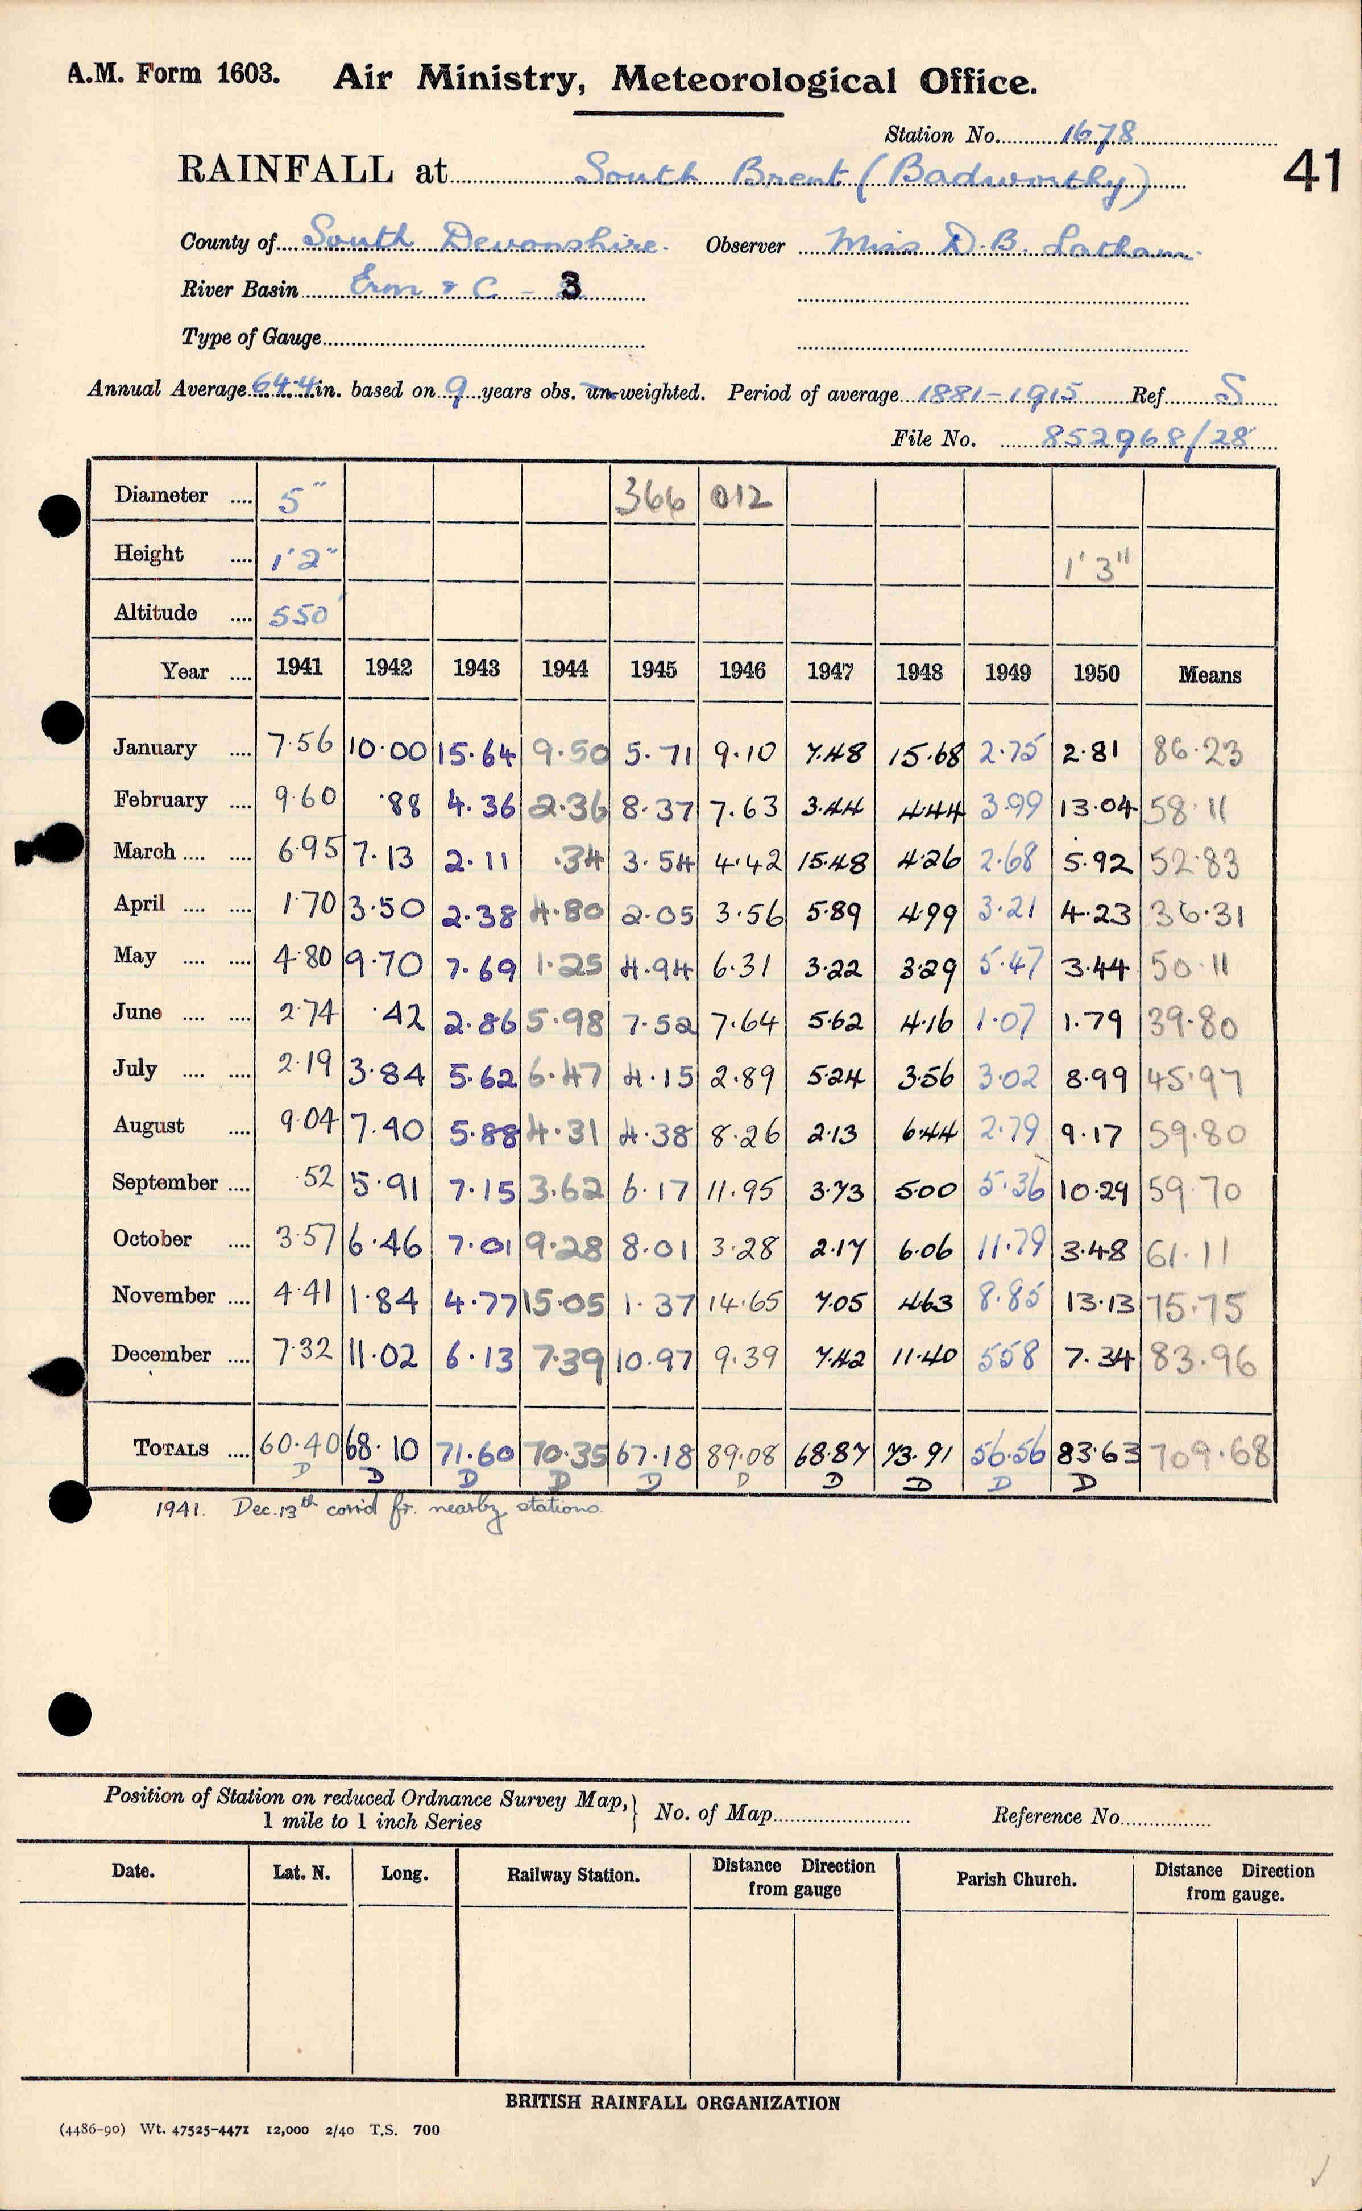 A.M. Form 1603. Air Ministry, Meteorological Office.
Station No. 1678
RAINFALL at South Brent (Badworthy) 41
County of South Devonshire. Observer Miss D. B. Latham.
River Basin Erm & C - 3
Type of Gauge
Annual Average 64.4 in. based on 9 years obs. un-weighted. Period of average 1881-1915 Ref. S
File No. 852968/28
Diameter .... 5" 366 012
Height .... 1'2" 1'3"
Altitude .... 550'
Year .... 1941 1942 1943 1944 1945 1946 1947 1948 1949 1950 Means
January .... 7.56 10.00 15.64 9.50 5.71 9.10 7.48 15.68 2.75 2.81 86.23
February .... 9.60 .88 4.36 2.36 8.37 7.63 3.44 4.44 3.99 13.04 58.11
March .... .... 6.95 7.13 2.11 .34 3.54 4.42 15.48 4.26 2.68 5.92 52.83
April .... .... 1.70 3.50 2.38 4.80 2.05 3.56 5.89 4.99 3.21 4.23 36.31
May .... .... 4.80 9.70 7.69 1.25 4.94 6.31 3.22 3.29 5.47 3.44 50.11
June .... .... 2.74 .42 2.86 5.98 7.52 7.64 5.62 4.16 1.07 1.79 39.80
July .... .... 2.19 3.84 5.62 6.47 4.15 2.89 5.24 3.56 3.02 8.99 45.97
August .... 9.04 7.40 5.88 4.31 4.38 8.26 2.13 6.44 2.79 9.17 59.80
September .... .52 5.91 7.15 3.62 6.17 11.95 3.73 5.00 5.36 10.29 59.70
October .... 3.57 6.46 7.01 9.28 8.01 3.28 2.17 6.06 11.79 3.48 61.11
November .... 4.41 1.84 4.77 15.05 1.37 14.65 7.05 4.63 8.85 13.13 75.75
December .... 7.32 11.02 6.13 7.39 10.97 9.39 7.42 11.40 5.58 7.34 83.96
TOTALS .... 60.40 68.10 71.60 70.35 67.18 89.08 68.87 73.91 56.56 83.63 709.68
D D D D D D D D D D
1941. Dec. 13th corr'd fr. nearby stations.
Position of Station on reduced Ordnance Survey Map, } No. of Map Reference No.
1 mile to 1 inch Series
Date. Lat. N. Long. Railway Station. Distance Direction from gauge Parish Church. Distance Direction from gauge.
BRITISH RAINFALL ORGANIZATION
(4486-90) Wt. 47525-4471 12,000 2/40 T.S. 700